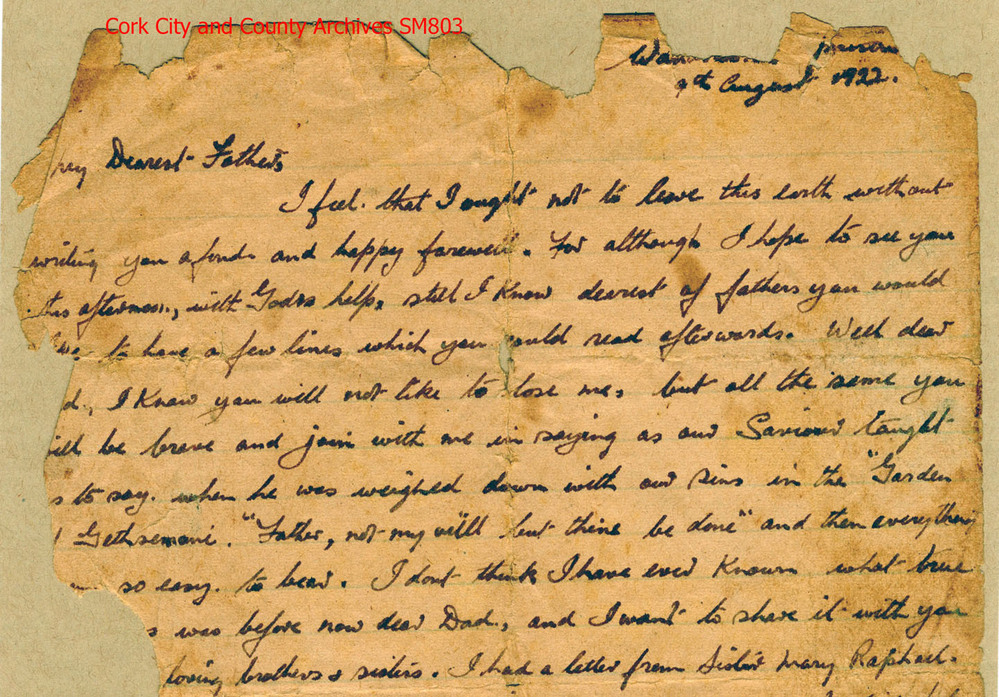 Cork City and County Archives SM803
prison
9th August 1922.
My Dearest Father,
I feel that I ought not to leave this earth without
writing you a fond and happy farewell. For although I hope to see you
this afternoon, with God's help, still I know dearest of fathers you would
to have a few lines which you could read afterwards. Well dear
d, I know you will not like to lose me, but all the same you
will be brave and join with me in saying as our Saviour taught
s to say when he was weighed down with our sins in the "Garden
Gethsemani. "Father, not my will but thine be done" and then everything
so easy to bear. I dont think I have ever known what true
s was before now dear Dad, and I want to share it with you
loving brothers & sisters. I had a letter from Sister Mary Raphael.